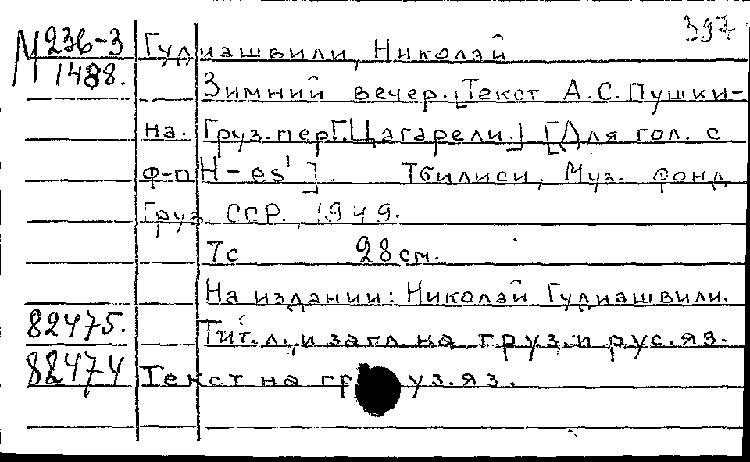 397
М 236-3 Гудиашвили, Николай
1488. Зимний вечер. [Текст А.С. Пушки-
на. Груз. пер. Г. Цагарели.] [Для гол. с
ф-п H-es¹] Тбилиси, Муз. фонд
Груз. ССР, 1949.
7с 28 см.
На издании: Николай Гудиашвили.
82475. Тит. л. и загл. на груз. и рус. яз.
82474 Текст на груз. яз.